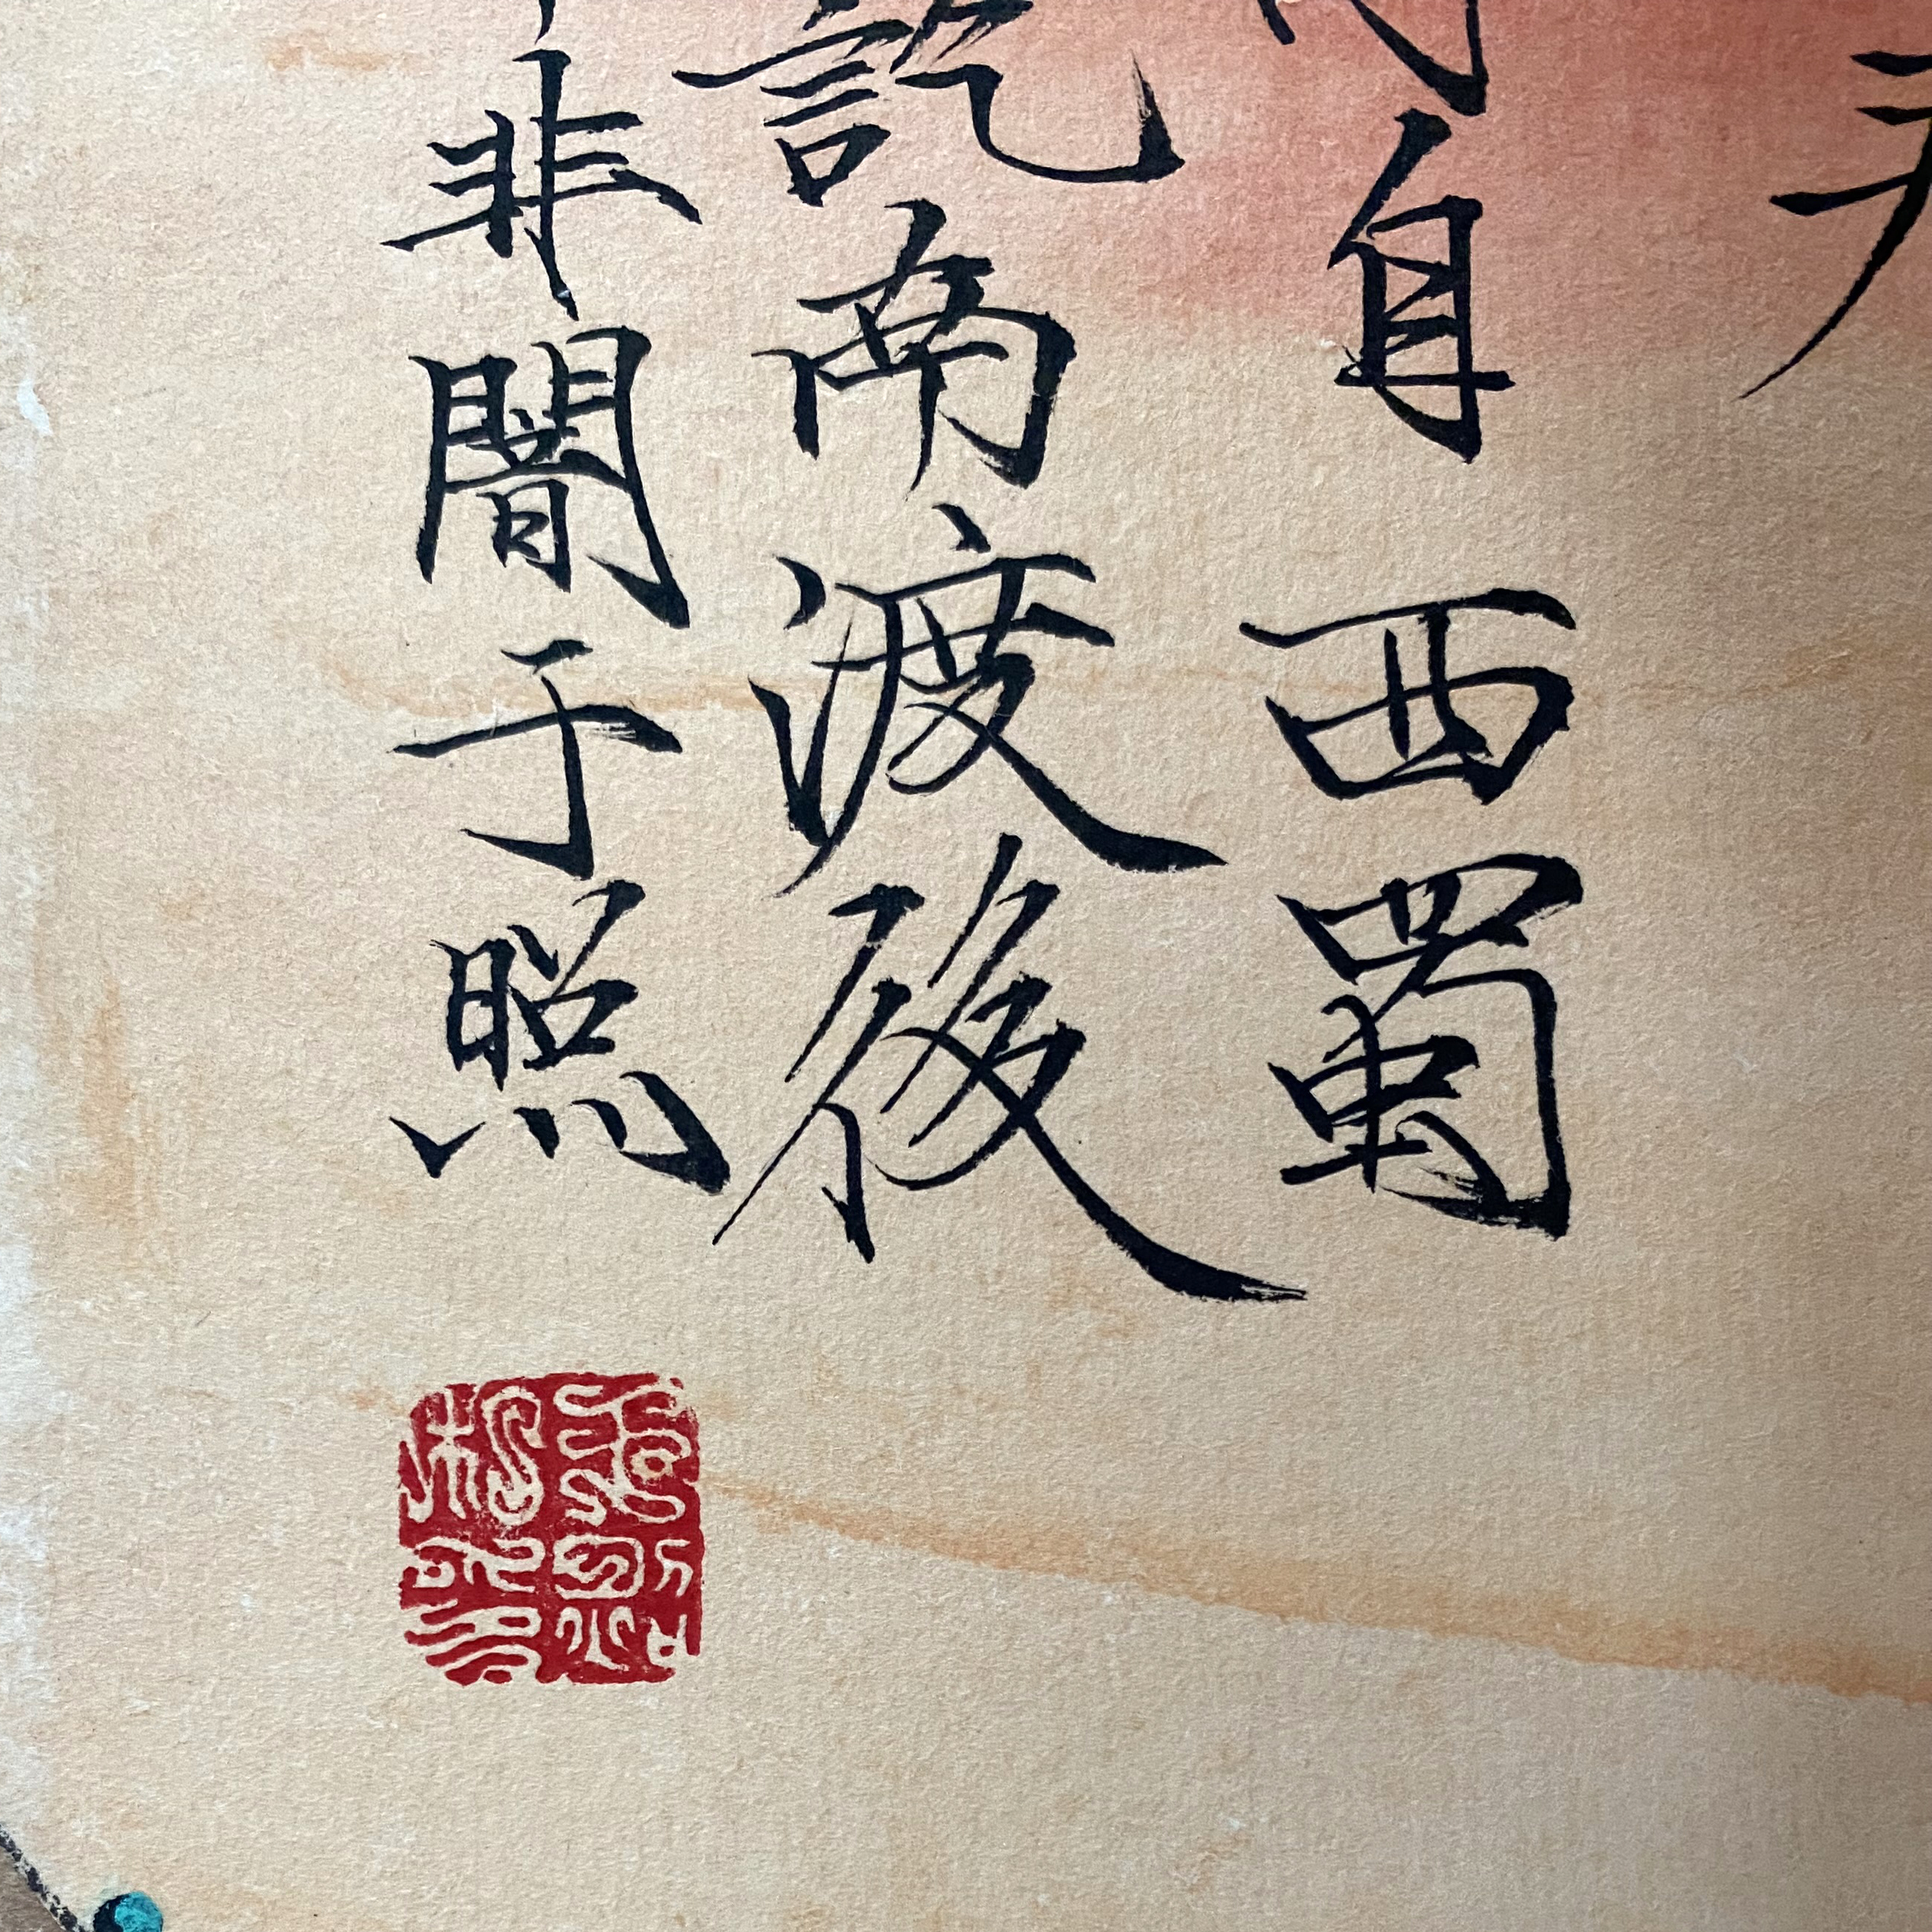 自西蜀
訖南渡後
非闇于照